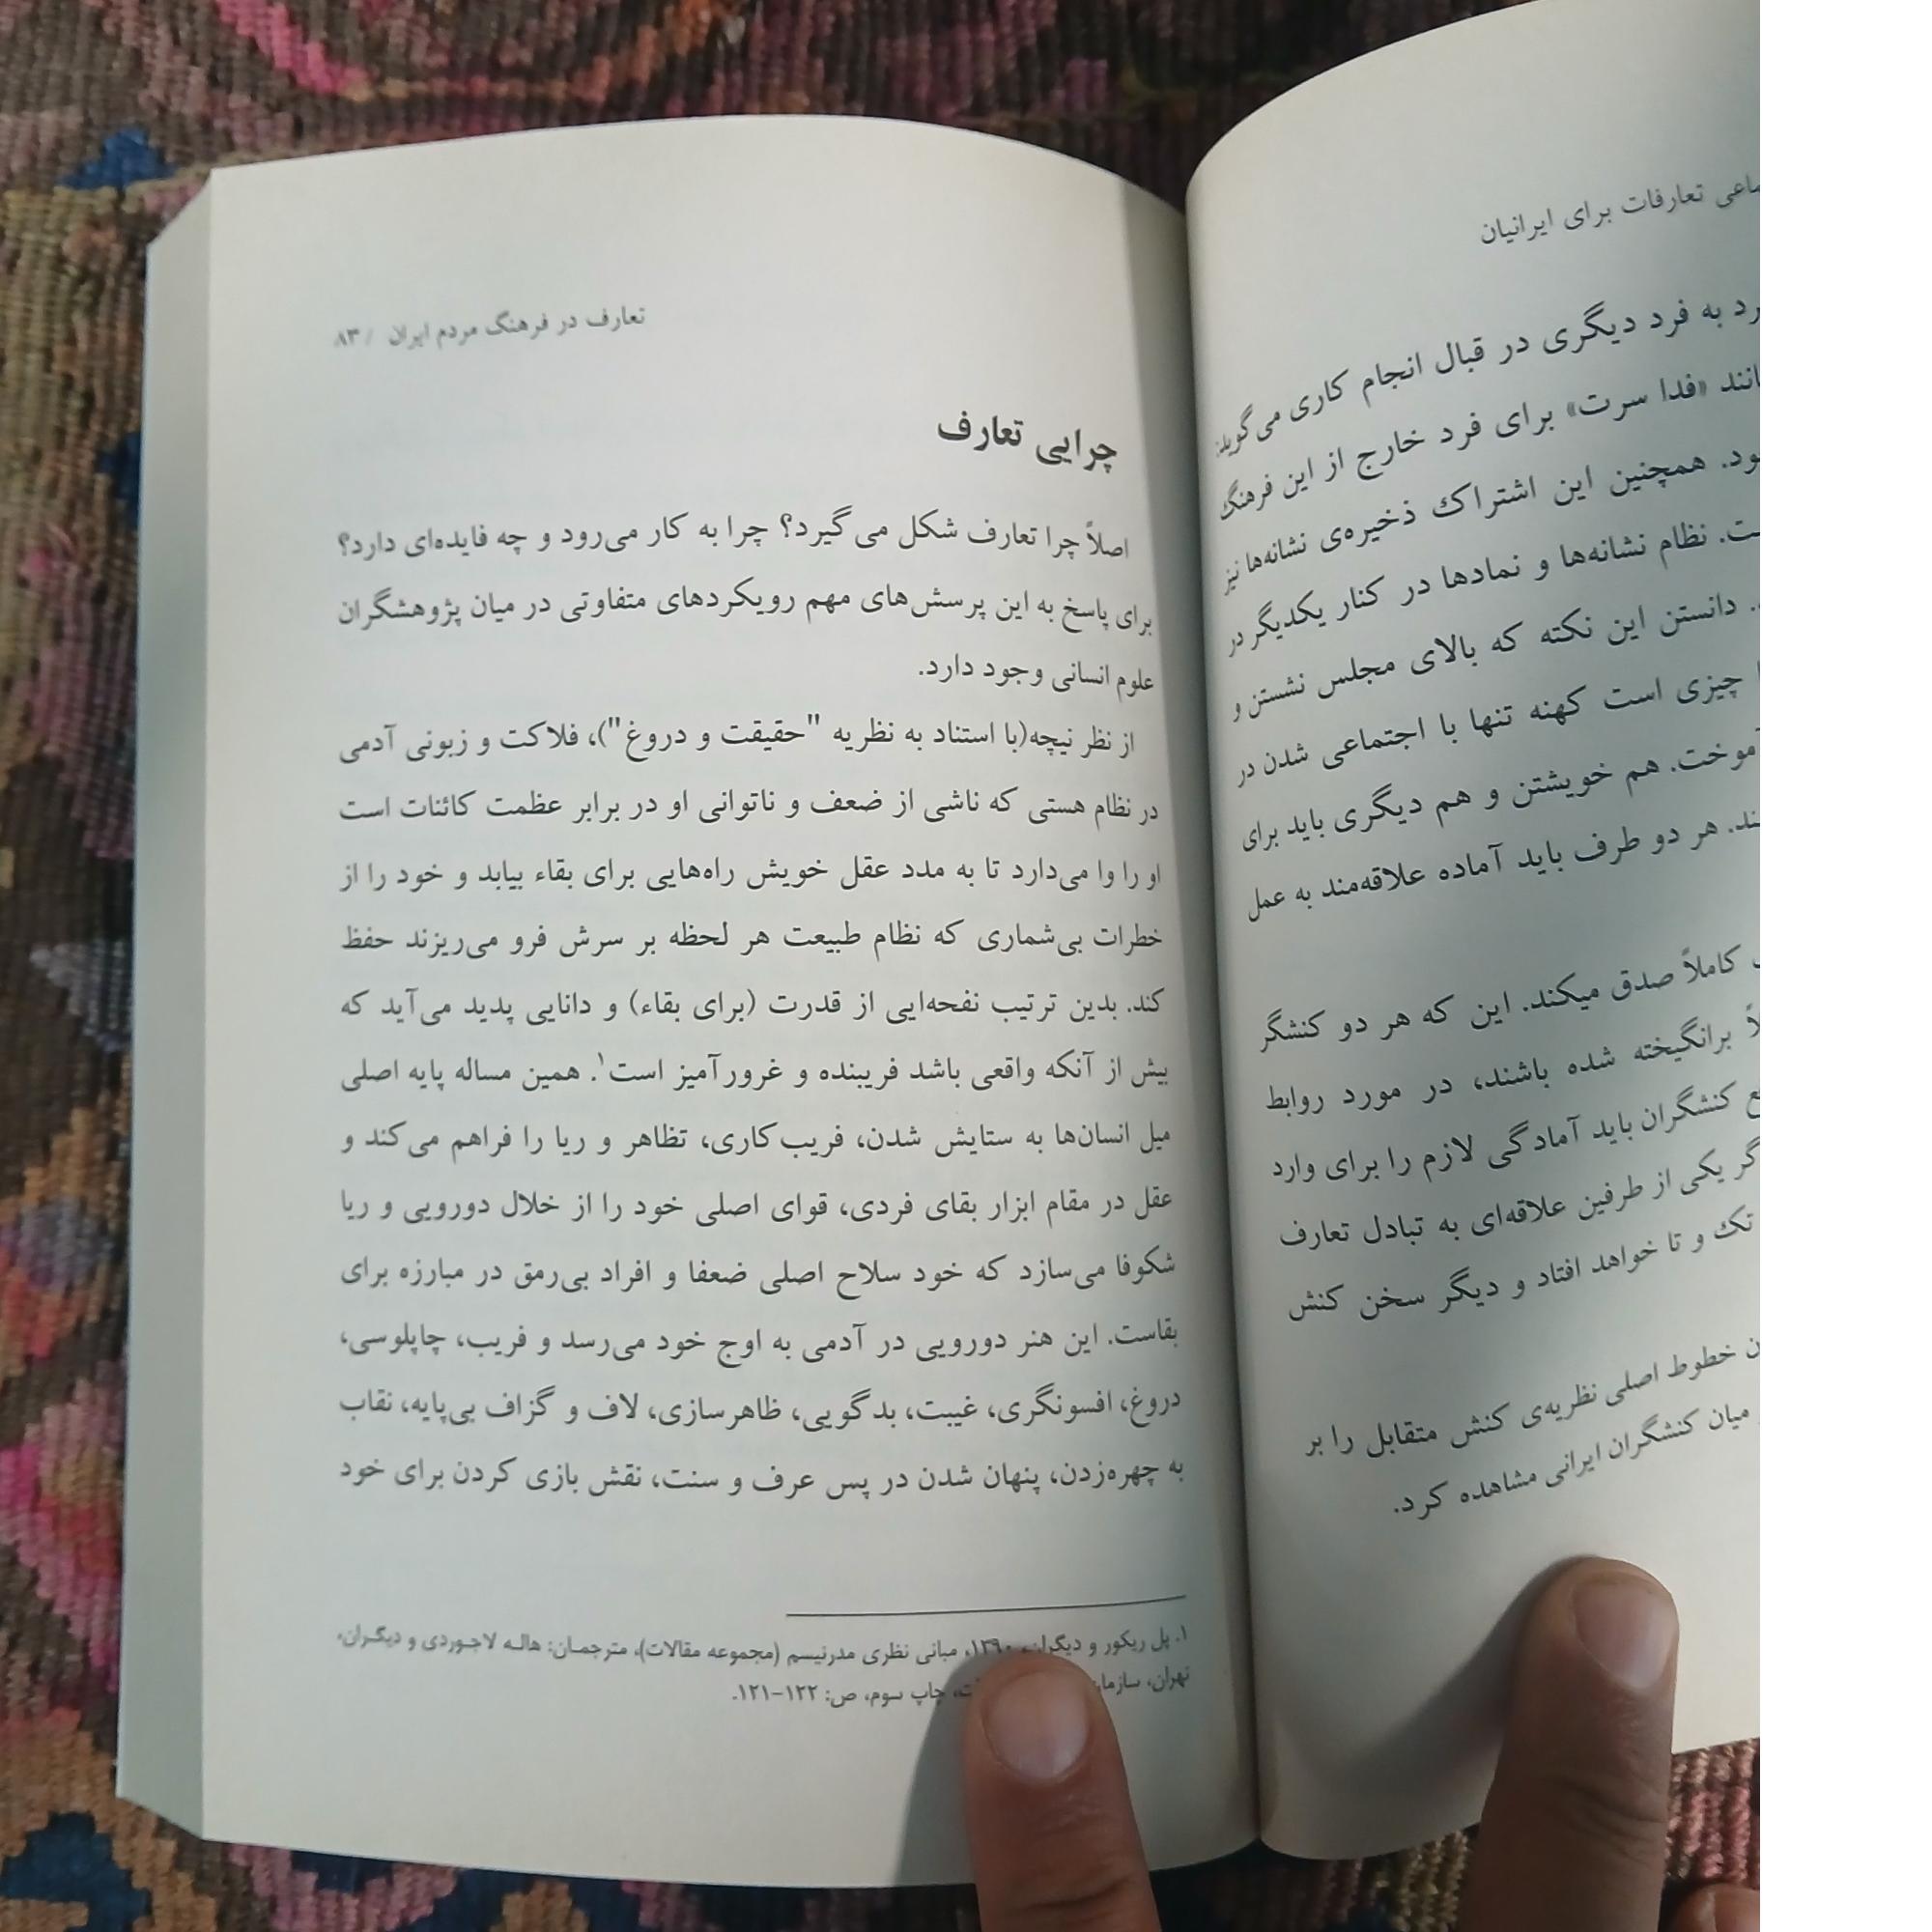 تعارفات برای ایرانیان
به فرد دیگری در قبال انجام کاری می‌گوید:
«فدا سرت» برای فرد خارج از این فرهنگ
همچنین این اشتراک ذخیره‌ی نشانه‌ها نیز
نظام نشانه‌ها و نمادها در کنار یکدیگر در
دانستن این نکته که بالای مجلس نشستن و
چیزی است کهنه تنها با اجتماعی شدن در
هم خویشتن و هم دیگری باید برای
هر دو طرف باید آماده علاقه‌مند به عمل
کاملاً صدق میکند. این که هر دو کنشگر
برانگیخته شده باشند، در مورد روابط
کنشگران باید آمادگی لازم را برای وارد
یکی از طرفین علاقه‌ای به تبادل تعارف
تک و تا خواهد افتاد و دیگر سخن کنش
خطوط اصلی نظریه‌ی کنش متقابل را بر
میان کنشگران ایرانی مشاهده کرد.
تعارف در فرهنگ مردم ایران / ۸۳
چرایی تعارف
اصلاً چرا تعارف شکل می‌گیرد؟ چرا به کار می‌رود و چه فایده‌ای دارد؟
برای پاسخ به این پرسش‌های مهم رویکردهای متفاوتی در میان پژوهشگران
علوم انسانی وجود دارد.
از نظر نیچه(با استناد به نظریه "حقیقت و دروغ")، فلاکت و زبونی آدمی
در نظام هستی که ناشی از ضعف و ناتوانی او در برابر عظمت کائنات است
او را وا می‌دارد تا به مدد عقل خویش راه‌هایی برای بقاء بیابد و خود را از
خطرات بی‌شماری که نظام طبیعت هر لحظه بر سرش فرو می‌ریزند حفظ
کند. بدین ترتیب نفحه‌ایی از قدرت (برای بقاء) و دانایی پدید می‌آید که
بیش از آنکه واقعی باشد فریبنده و غرورآمیز است۱. همین مساله پایه اصلی
میل انسان‌ها به ستایش شدن، فریب‌کاری، تظاهر و ریا را فراهم می‌کند و
عقل در مقام ابزار بقای فردی، قوای اصلی خود را از خلال دورویی و ریا
شکوفا می‌سازد که خود سلاح اصلی ضعفا و افراد بی‌رمق در مبارزه برای
بقاست. این هنر دورویی در آدمی به اوج خود می‌رسد و فریب، چاپلوسی،
دروغ، افسونگری، غیبت، بدگویی، ظاهرسازی، لاف و گزاف بی‌پایه، نقاب
به چهره‌زدن، پنهان شدن در پس عرف و سنت، نقش بازی کردن برای خود
۱. پل ریکور و دیگران، ۱۳۹۰، مبانی نظری مدرنیسم (مجموعه مقالات)، مترجمـان: هالـه لاجـوردی و دیگـران،
تهران، چاپ سوم، ص: ۱۲۲-۱۲۱.